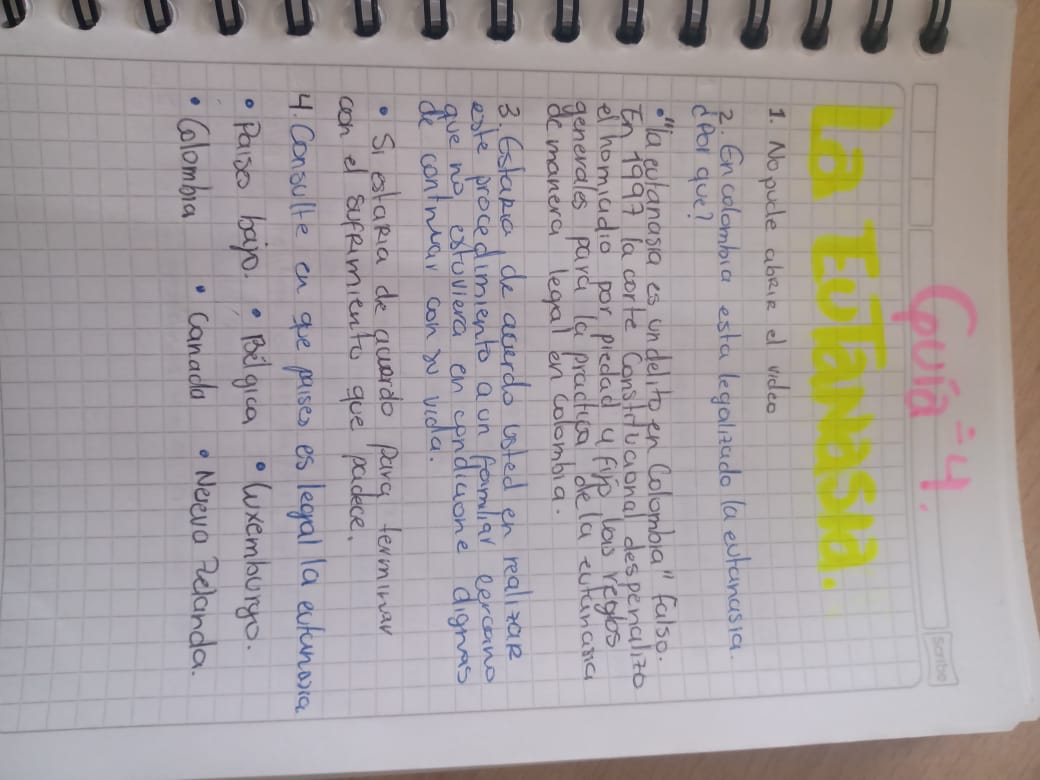 Guía - 4.
scribe
La EuTanasia.
1. No pude abrir el video
2. En colombia esta legalizado la eutanasia.
¿Por que?
• "la eutanasia es un delito en Colombia" falso.
En 1997 la corte Constitucional despenalizo
el homicidio por piedad y fijo las reglas
generales para la practica de la eutanasia
de manera legal en colombia.
3. Estaria de acuerdo usted en realizar
este procedimiento a un familiar cercano
que no estuviera en condicione dignas
de continuar con su vida.
• Si estaria de acuerdo para terminar
con el sufrimiento que padece.
4. Consulte en que paises es legal la eutanasia
• Paiso bajo. • Bélgica • Luxemburgo.
• Colombia • Canada • Nueva Zelanda.